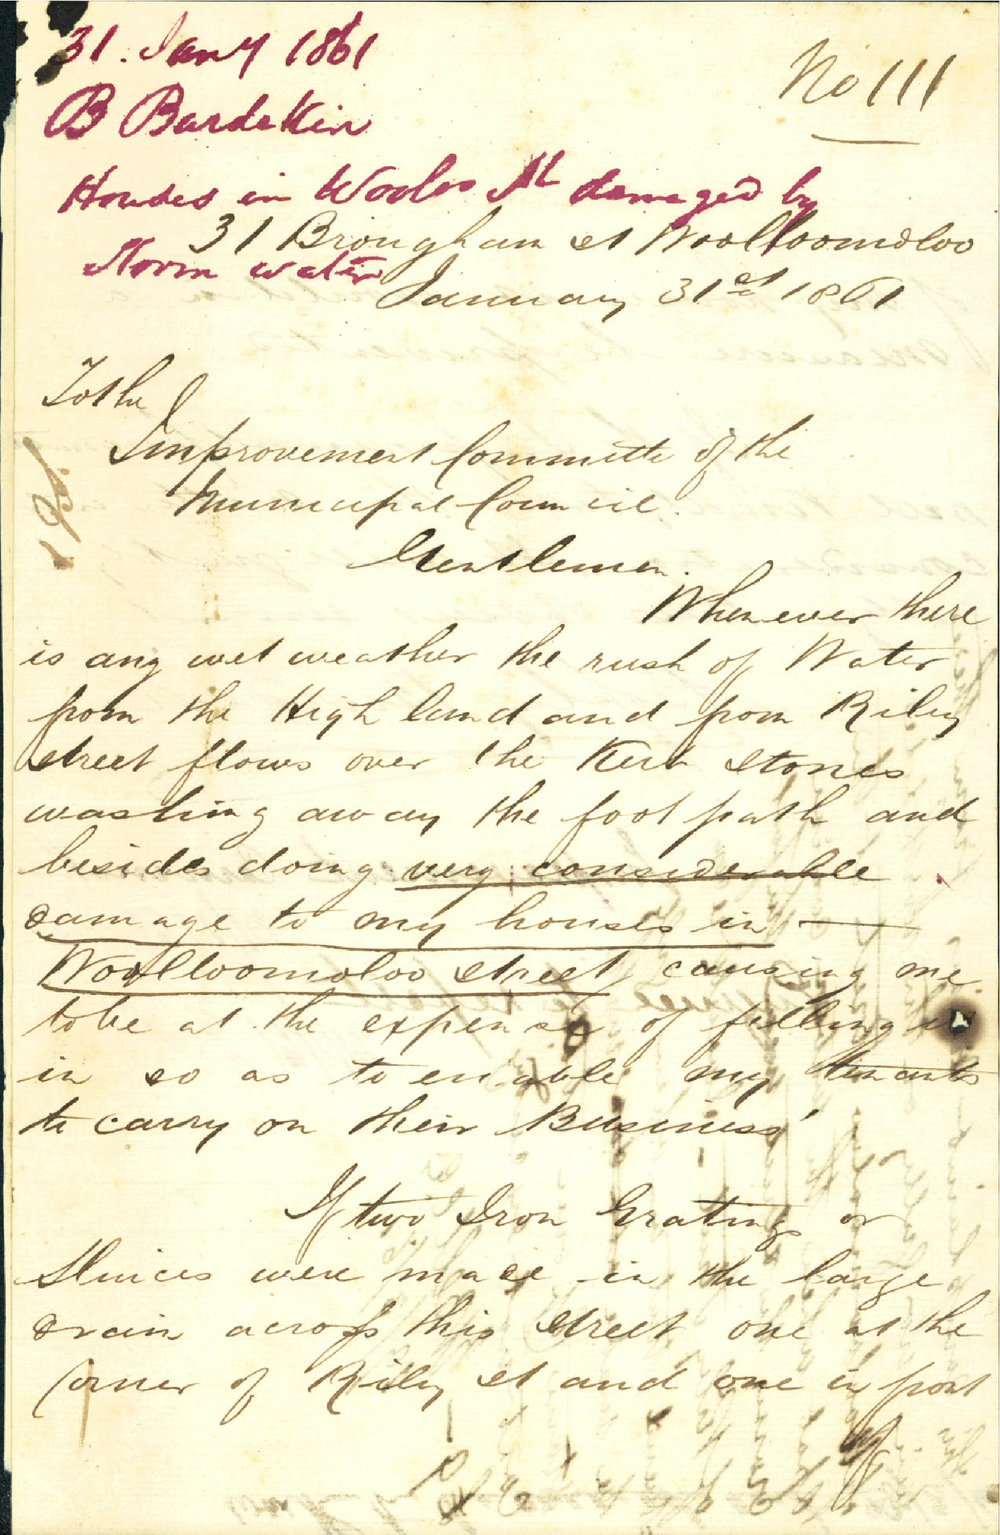 31. Jany 1861
No 111
B Bardekin
Houses in Wooloo St damaged by
31 Brougham st Woolloomoloo
Storm water
January 31st 1861
To the
Improvement Committe of the
Municipal Council.
Gentlemen.
Whenever there
is any wet weather the rush of Water
from the High land and from Riley
street flows over the Kerb Stones
washing away the foot path and
besides doing very considerable
damage to my houses in
Woolloomoloo Street causing me
to be at the expense of filling
in so as to enable my tenants
to carry on their Business
If two Iron Gratings or
Sluices were made in the large
drain across this Street one at the
Corner of Riley st and one in front
of